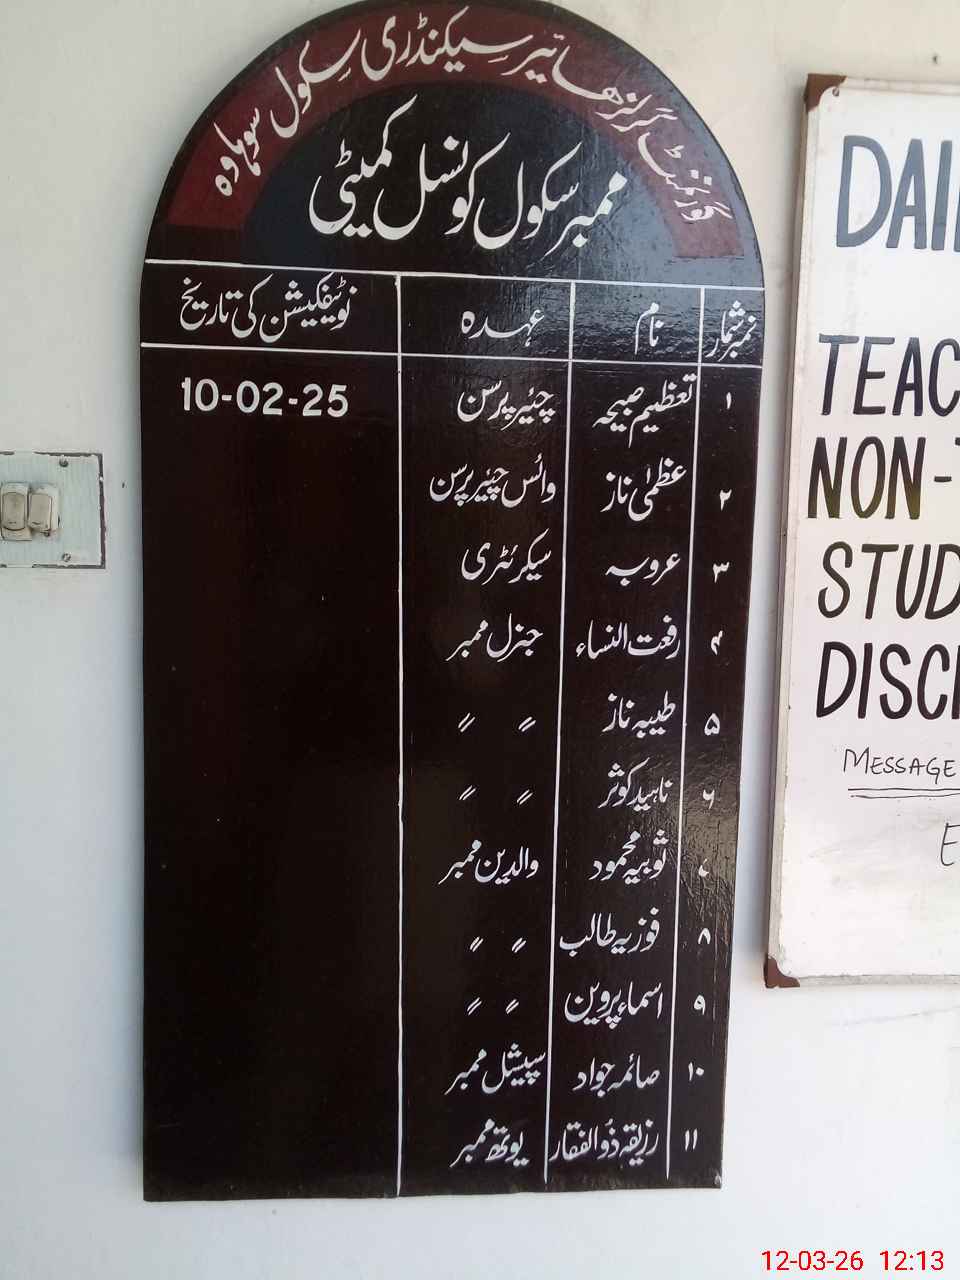 گورنمنٹ گرلز ہائیر سیکنڈری سکول سوہاوہ
ممبر سکول کونسل کمیٹی
نمبر شمار نام عہدہ نوٹیفکیشن کی تاریخ
۱ تعظیم صبیحہ چیئرپرسن 10-02-25
۲ عظمیٰ ناز وائس چیئرپرسن
۳ عروبہ سیکرٹری
۴ رفعت النساء جنرل ممبر
۵ طیبہ ناز 〃 〃
۶ ناہید کوثر 〃 〃
۷ ثوبیہ محمود والدین ممبر
۸ فوزیہ طالب 〃 〃
۹ اسماء پروین 〃 〃
۱۰ صائمہ جواد سپیشل ممبر
۱۱ رزیقہ ذوالفقار یوتھ ممبر
DAI
TEAC
NON-
STUD
DISC
MESSAGE
E
12-03-26 12:13